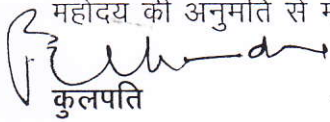 महोदय की अनुमति से
कुलपति